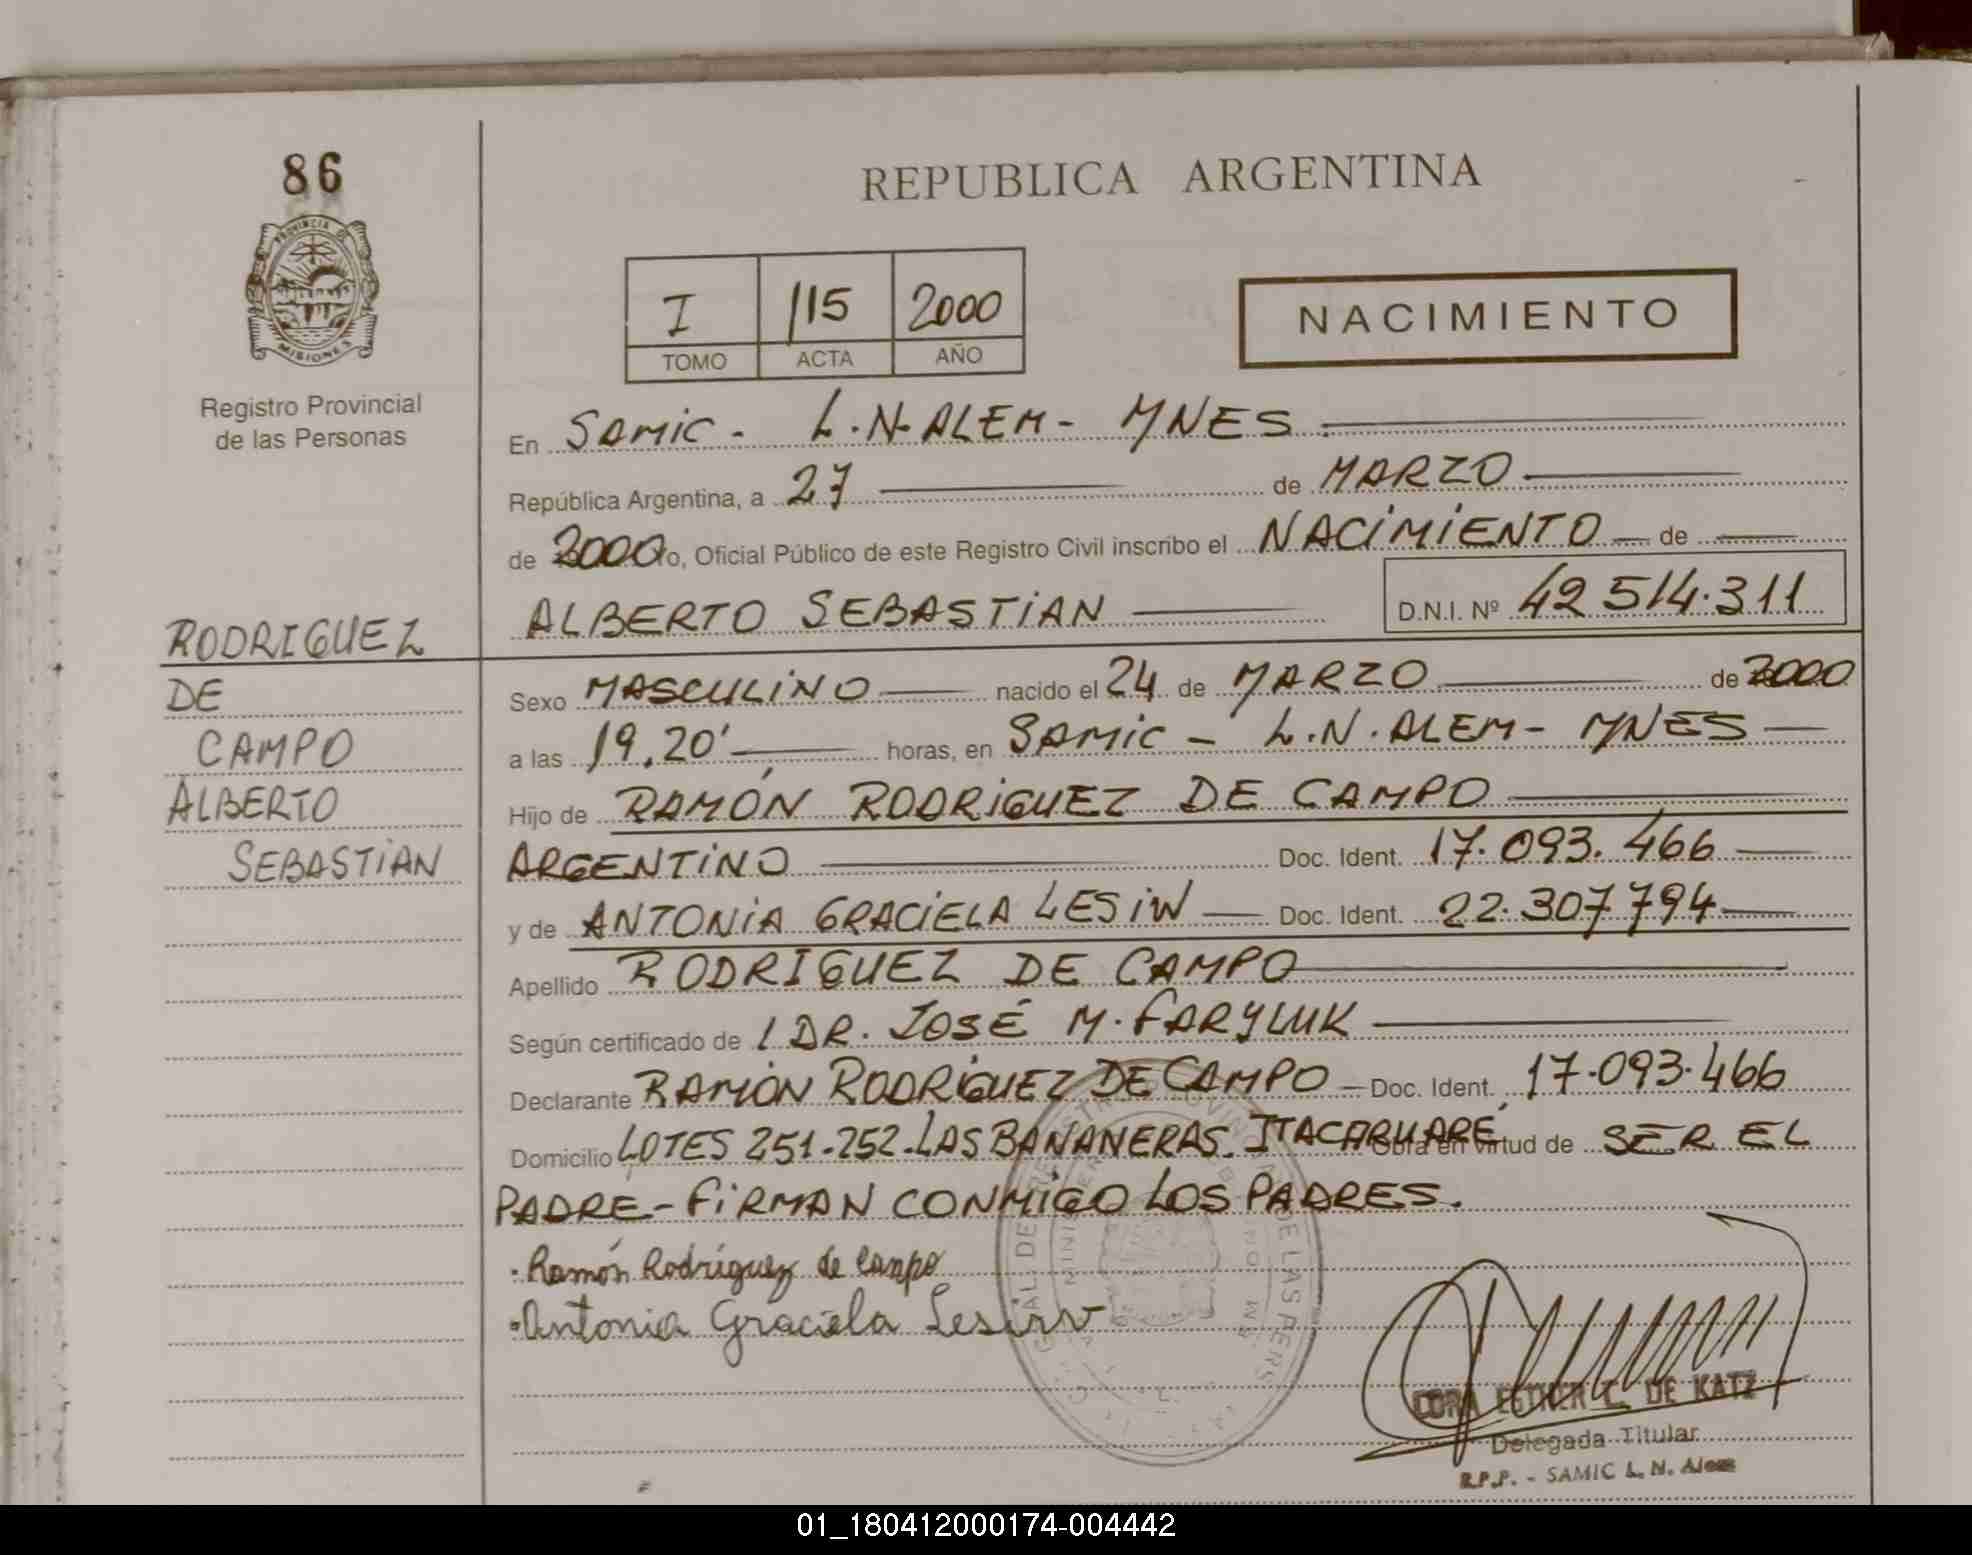 86
PROVINCIA DE
MISIONES
Registro Provincial
de las Personas
RODRIGUEZ
DE
CAMPO
ALBERTO
SEBASTIAN
REPUBLICA ARGENTINA
I 115 2000
TOMO ACTA AÑO
NACIMIENTO
En SAMIC - L.N. ALEM - MNES.
República Argentina, a 27 de MARZO
de 2000 o, Oficial Público de este Registro Civil inscribo el NACIMIENTO de
ALBERTO SEBASTIAN D.N.I. Nº 42 514.311
Sexo MASCULINO nacido el 24 de MARZO de 2000
a las 19,20' horas, en SAMIC - L.N. ALEM - MNES
Hijo de RAMÓN RODRIGUEZ DE CAMPO
ARGENTINO Doc. Ident. 17.093.466
y de ANTONIA GRACIELA LESIW Doc. Ident. 22.307794
Apellido RODRIGUEZ DE CAMPO
Según certificado de / DR. JOSÉ M. FARYLUK
Declarante RAMÓN RODRIGUEZ DE CAMPO Doc. Ident. 17.093.466
Domicilio LOTES 251-252-LAS BANANERAS. ITACARUARE Obra en virtud de SER EL
PADRE - FIRMAN CONMIGO LOS PADRES.
Ramón Rodríguez de Campo
Antonia Graciela Lesiw
CORA ESTHER C. DE KATZ
Delegada Titular
R.P.P. - SAMIC L. N. Alem
01_180412000174-004442